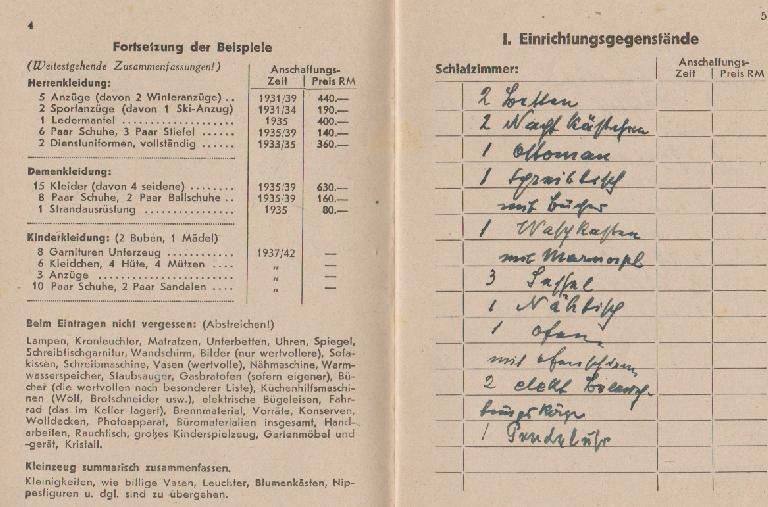 4
Fortsetzung der Beispiele
(Weitestgehende Zusammenfassungen!)
Anschaffungs-
Zeit Preis RM
Herrenkleidung:
5 Anzüge (davon 2 Winteranzüge) .. 1931/39 440.—
2 Sportanzüge (davon 1 Ski-Anzug) 1931/34 190.—
1 Ledermantel .................... 1935 400.—
6 Paar Schuhe, 3 Paar Stiefel ...... 1935/39 140.—
2 Dienstuniformen, vollständig ...... 1933/35 360.—
Damenkleidung:
15 Kleider (davon 4 seidene) ........ 1935/39 630.—
8 Paar Schuhe, 2 Paar Ballschuhe .. 1935/39 160.—
1 Strandausrüstung ................ 1935 80.—
Kinderkleidung: (2 Buben, 1 Mädel)
8 Garnituren Unterzeug ............ 1937/42 —
6 Kleidchen, 4 Hüte, 4 Mützen .... „ —
3 Anzüge ........................ „ —
10 Paar Schuhe, 2 Paar Sandalen .... „ —
Beim Eintragen nicht vergessen: (Abstreichen!)
Lampen, Kronleuchter, Matratzen, Unterbetten, Uhren, Spiegel,
Schreibtischgarnitur, Wandschirm, Bilder (nur wertvollere), Sofa-
kissen, Schreibmaschine, Vasen (wertvolle), Nähmaschine, Warm-
wasserspeicher, Staubsauger, Gasbratofen (sofern eigener), Bü-
cher (die wertvollen nach besonderer Liste), Küchenhilfsmaschi-
nen (Woll, Brotschneider usw.), elektrische Bügeleisen, Fahr-
rad (das im Keller lagert), Brennmaterial, Vorräte, Konserven,
Wolldecken, Photoapparat, Büromaterialien insgesamt, Hand-
arbeiten, Rauchtisch, großes Kinderspielzeug, Gartenmöbel und
-gerät, Kristall.
Kleinzeug summarisch zusammenfassen.
Kleinigkeiten, wie billige Vasen, Leuchter, Blumenkästen, Nip-
pesfiguren u. dgl. sind zu übergehen.
5
I. Einrichtungsgegenstände
Schlafzimmer:
Anschaffungs-
Zeit Preis RM
2 Betten
2 Nachtkästchen
1 Ottoman
1 Schreibtisch
mit Bücher
1 Waschkasten
mit Marmorpl
3 Sessel
1 Nähtisch
1 Ofen
mit Ofenschirm
2 elekt Beleuch-
tungskörper
1 Pendeluhr